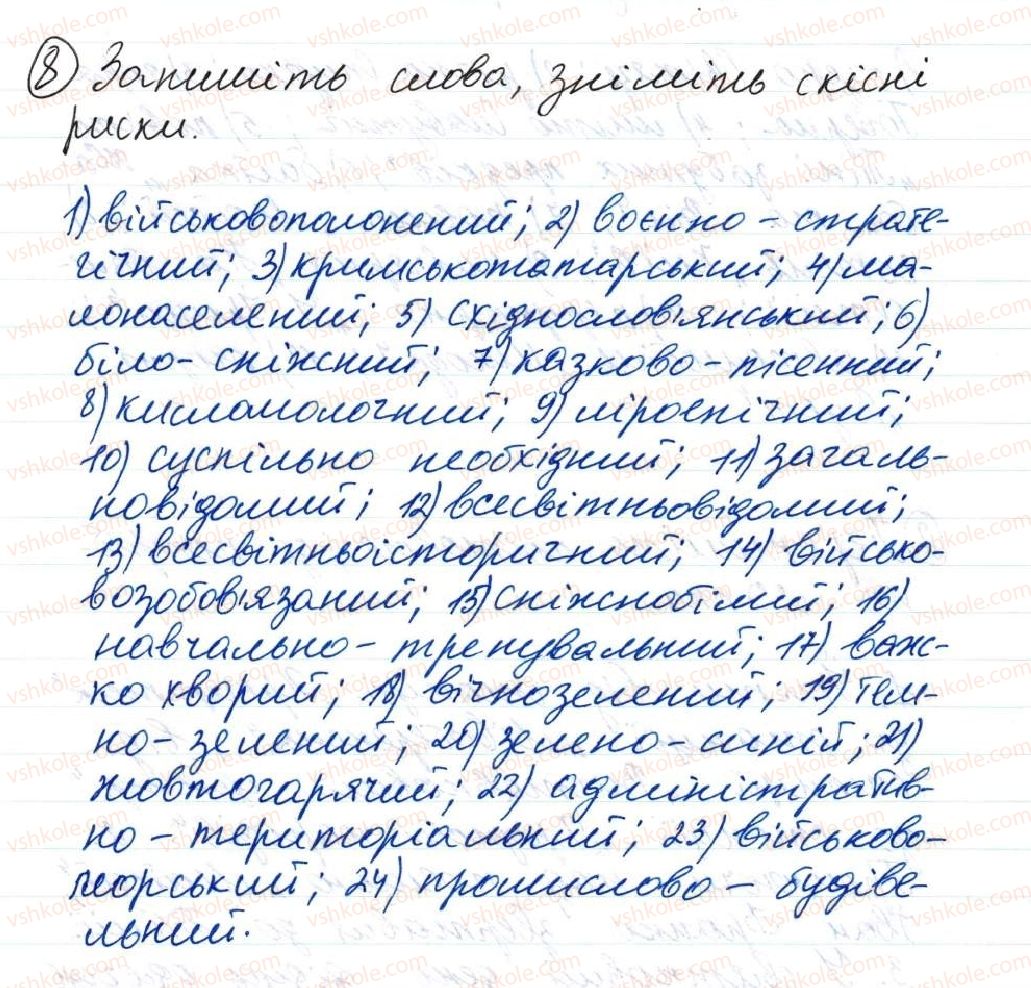 8 Запишіть слова, зніміть скісні
риски.
1) військовополонений; 2) воєнно - страте-
гічний; 3) кримськотатарський; 4) ма-
лонаселений; 5) східнословянський; 6)
біло - сніжний; 7) казково - пісенний;
8) кисломолочний; 9) ліроепічний;
10) суспільно необхідний; 11) загаль-
новідомий; 12) всесвітньовідомий;
13) всесвітньоісторичний; 14) військо-
возобов'язаний; 15) сніжнобілий; 16)
навчально - тренувальний; 17) важ-
ко хворий; 18) вічнозелений; 19) тем-
но - зелений; 20) зелено - синій; 21)
жовтогарячий; 22) адміністратив-
но - територіальний; 23) військово -
морський; 24) промислово - будіве-
льний.